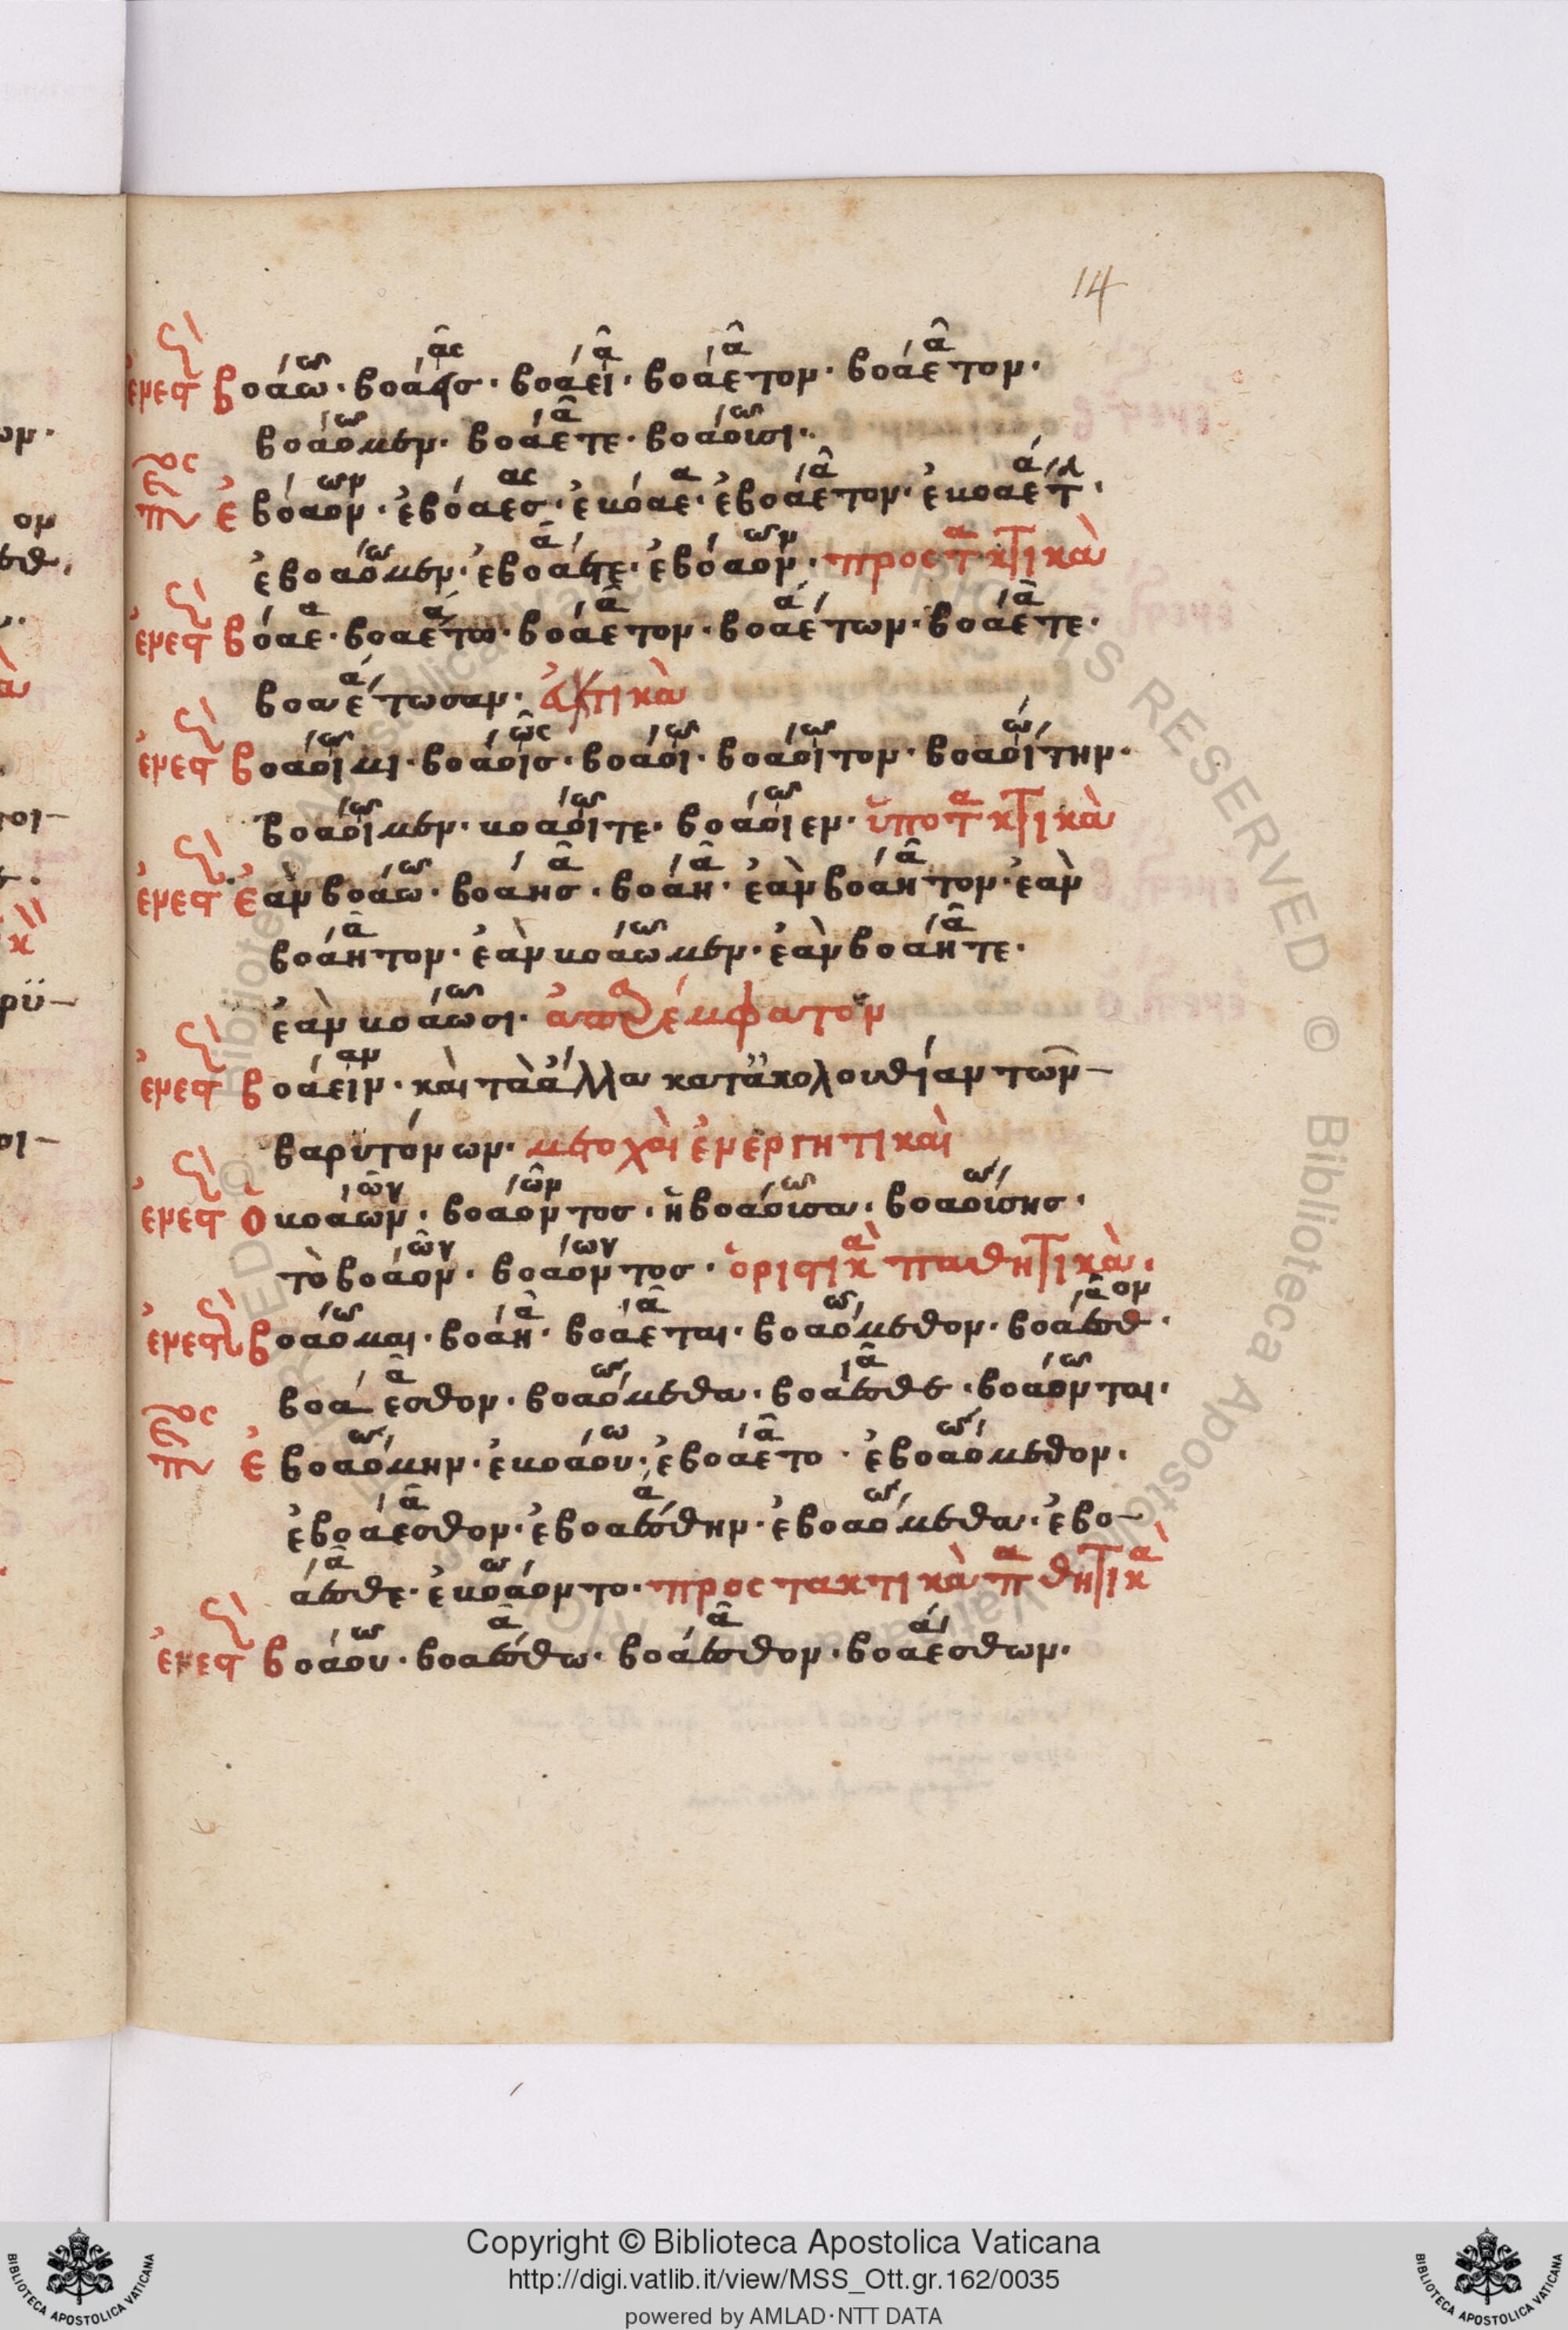 14
ἐνεστ βοάω · βοάεισ · βοάει · βοάετον · βοάετον ·
βοάομεν · βοάετε · βοάουσι ·
ἐβόαον · ἐβόαεσ · ἐβόαε · ἐβοάετον · ἐβοαέτ ·
ἐβοαόμεν · ἐβοάετε · ἐβόαον · προστακτικὰ
ἐνεστ βόαε · βοαέτω · βοάετον · βοαέτων · βοάετε ·
βοαέτωσαν · εὐκτικὰ
ἐνεστ βοάοιμι · βοάοισ · βοάοι · βοάοιτον · βοαοίτην ·
βοάοιμεν · βοάοιτε · βοάοιεν · ὑποτακτικὰ
ἐνεστ ἐὰν βοάω · βοάησ · βοάη · ἐὰν βοάητον · ἐὰν
βοάητον · ἐὰν βοάωμεν · ἐὰν βοάητε ·
ἐὰν βοάωσι · ἀπαρέμφατον
ἐνεστ βοάειν · καὶ τὰ ἄλλα κατ᾽ ἀκολουθίαν τῶν
βαρυτόνων · μετοχαὶ ἐνεργητικαὶ
ἐνεστ ὁ βοάων · βοάοντοσ · ἡ βοάουσα · βοαούσησ ·
τὸ βοάον · βοάοντοσ · ὁριστικὰ παθητικὰ ·
ἐνεστ βοάομαι · βοάη · βοάεται · βοαόμεθον · βοάεσθ ·
βοάεσθον · βοαόμεθα · βοάεσθε · βοάονται ·
ἐβοαόμην · ἐβοάου · ἐβοάετο · ἐβοαόμεθον ·
ἐβοάεσθον · ἐβοαέσθην · ἐβοαόμεθα · ἐβο
άεσθε · ἐβοάοντο · προστακτικὰ παθητικ
ἐνεστ βοάου · βοαέσθω · βοάεσθον · βοαέσθων ·
Copyright © Biblioteca Apostolica Vaticana
http://digi.vatlib.it/view/MSS_Ott.gr.162/0035
powered by AMLAD·NTT DATA